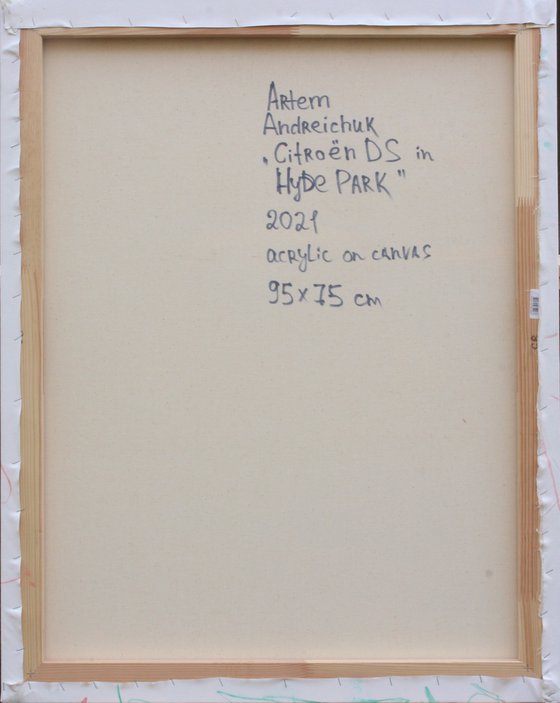 Artem
Andreichuk
„Citroën DS in
Hyde PARK”
2021
acrylic on canvas
95x75 cm